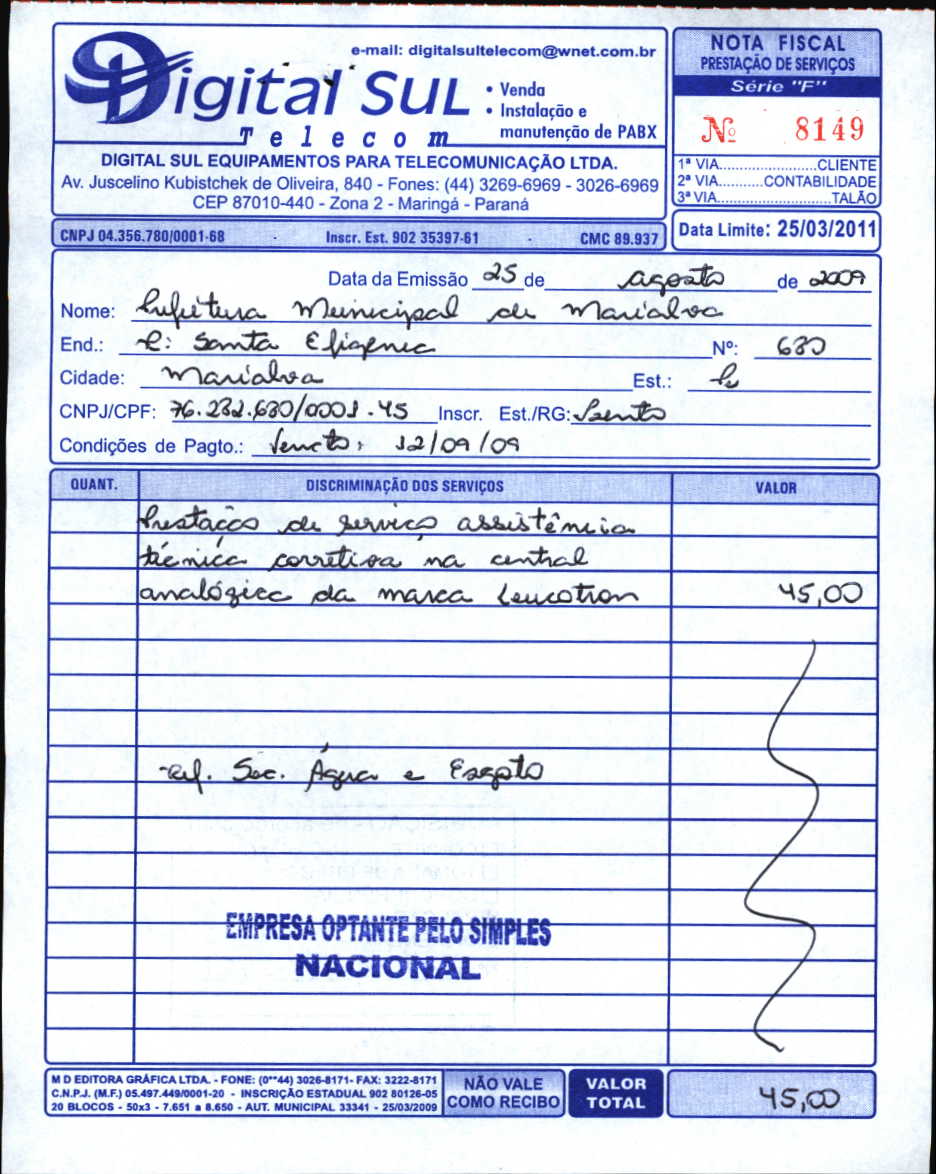 e-mail: digitalsultelecom@wnet.com.br
Digital Sul
Telecom
• Venda
• Instalação e
manutenção de PABX
DIGITAL SUL EQUIPAMENTOS PARA TELECOMUNICAÇÃO LTDA.
Av. Juscelino Kubistchek de Oliveira, 840 - Fones: (44) 3269-6969 - 3026-6969
CEP 87010-440 - Zona 2 - Maringá - Paraná
NOTA FISCAL
PRESTAÇÃO DE SERVIÇOS
Série "F"
Nº 8149
1ª VIA......................CLIENTE
2ª VIA...........CONTABILIDADE
3ª VIA.........................TALÃO
CNPJ 04.356.780/0001-68 - Inscr. Est. 902 35397-61 - CMC 89.937
Data Limite: 25/03/2011
Data da Emissão 25 de agosto de 2009
Nome: Prefeitura Municipal de Marialva
End.: R: Santa Efigenia Nº: 680
Cidade: Marialva Est.: Pr
CNPJ/CPF: 76.282.680/0001-45 Inscr. Est./RG: Isento
Condições de Pagto.: Vencto: 12/09/09
QUANT. DISCRIMINAÇÃO DOS SERVIÇOS VALOR
Prestação de serviço assistência
técnica corretiva na central
analógica da marca Leucotron 45,00
Ref. Sec. Água e Esgoto
EMPRESA OPTANTE PELO SIMPLES
NACIONAL
M D EDITORA GRÁFICA LTDA. - FONE: (0**44) 3026-8171- FAX: 3222-8171
C.N.P.J. (M.F.) 05.497.449/0001-20 - INSCRIÇÃO ESTADUAL 902 80126-05
20 BLOCOS - 50x3 - 7.651 a 8.650 - AUT. MUNICIPAL 33341 - 25/03/2009
NÃO VALE
COMO RECIBO
VALOR
TOTAL
45,00